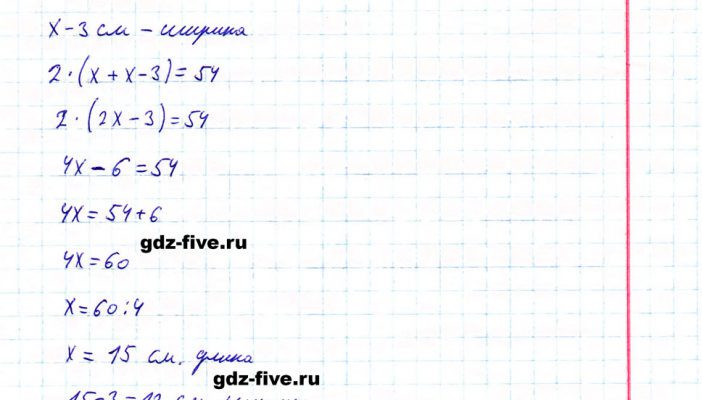 x-3 см - ширина
2·(x+x-3)=54
2·(2x-3)=54
4x-6=54
4x=54+6
gdz-five.ru
4x=60
x=60:4
x= 15 см. длина
gdz-five.ru
15-3=12 см